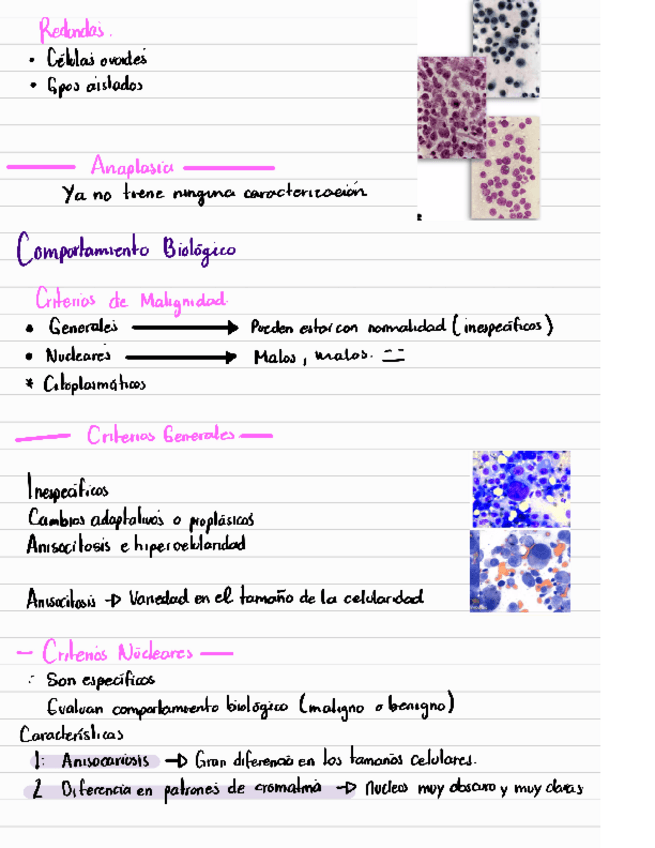 Redondas.
• Células ovoides
• Gpos aislados
Anaplasia
Ya no tiene ninguna caracterización
Comportamiento Biológico
Criterios de Malignidad
• Generales → Pueden estar con normalidad (inespecíficos)
• Nucleares → Malos, malos.
* Citoplasmáticos
Criterios Generales
Inespecíficos
Cambios adaptativos o proplásicos
Anisocitosis e hipercelularidad
Anisocitosis → Variedad en el tamaño de la celularidad
- Criterios Núcleares
Son específicos
Evaluan comportamiento biológico (maligno o benigno)
Características
1: Anisocariosis → Gran diferencia en los tamaños celulares.
2 Diferencia en patrones de cromatina → Nucleos muy obscuro y muy claras